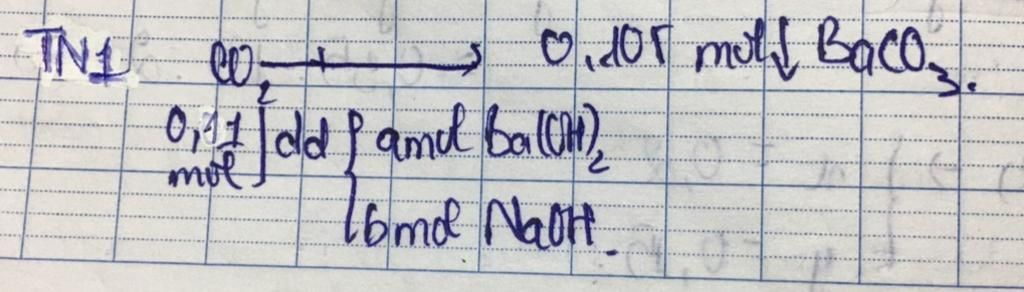 TN1 CO2 → 0,105 mol↓ BaCO3.
0,11 mol ] dd { amol Ba(OH)2
bmol NaOH.